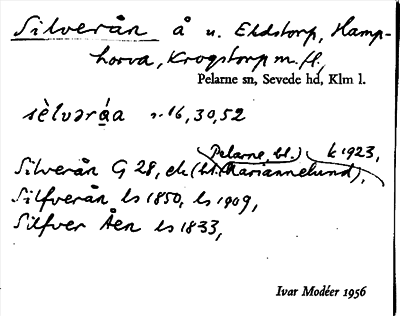 Silverån å u. Ekdstorp, Hamp-
horva, Krogstorp m. fl.,
Pelarne sn, Sevede hd, Klm l.
sèlvəráa r. 16, 30, 52
Pelarne, bl.) k 1923,
Silverån G 28, ek (bl. Mariannelund),
Silfverån ls 1850, ls 1909,
Silfver Åen ls 1833,
Ivar Modéer 1956